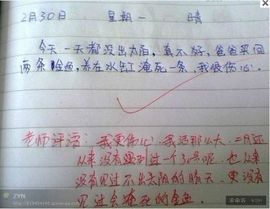 2月30日 星期一 晴
今天一天都没出太阳,真不好,爸爸买回
两条金鱼,养在水缸淹死一条,我很伤心.
老师评语:我更伤心,我活那么大,二月还
从来没有碰到过一个30号呢,也从来
没有见过不出太阳的晴天,更没有
见过会淹死的金鱼.
ZYN